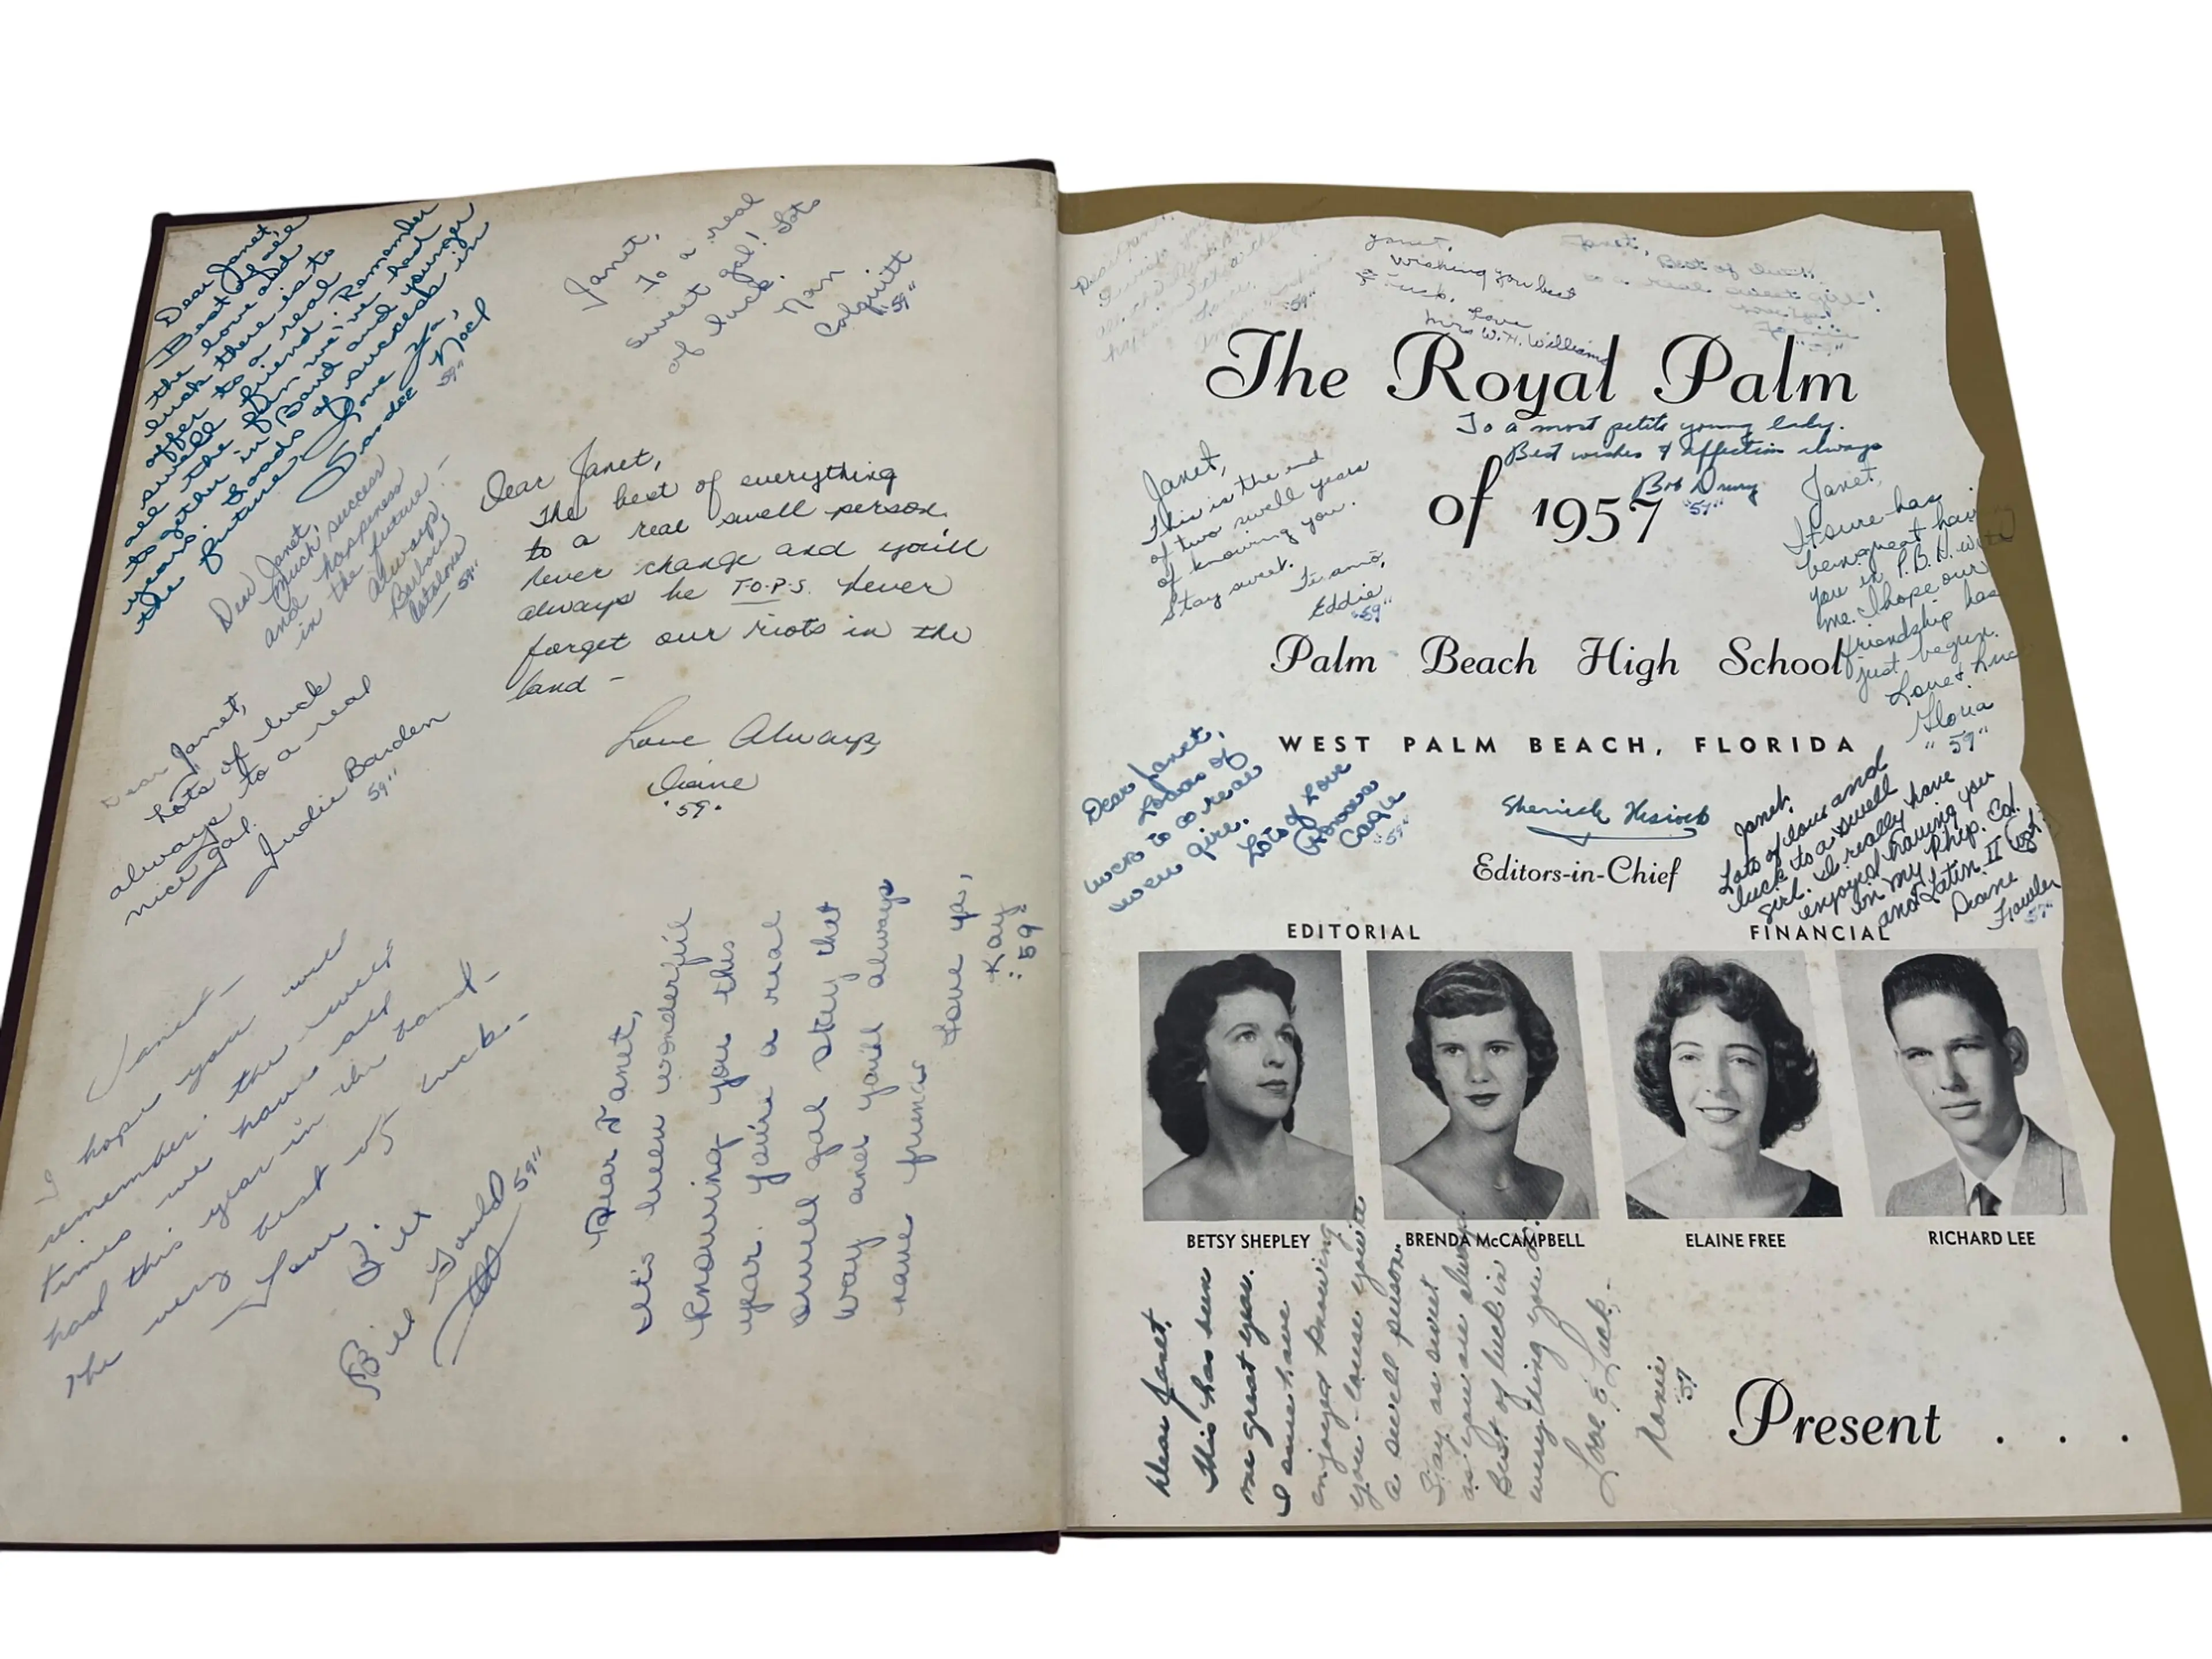 Dear Janet,
Best of all
the love and
luck there is to
offer to a real
swell friend. Remember
all the fun we've had
together in Band and younger
years. Loads of success in
the future.
Love Ya,
Sandee Noel
59"
Janet,
To a real
sweet gal! Lots
of luck.
Nan
Colquitt
"59"
Dear Janet,
Much success
and happiness
in the future!
Always,
Barbara
59"
Dear Janet,
The best of everything
to a real swell person.
Never change and you'll
always be T.O.P.S. Never
forget our riots in the
band -
Love Always,
Diane
"59"
Dear Janet,
Lots of luck
always to a real
nice gal.
Judie Barden
59"
Janet -
I hope you will
remember the swell
times we have all
had this year in the band -
The very best of luck. -
Love
Bill
Bill Gould 59"
Dear Janet,
It's been wonderful
knowing you this
year. You're a real
swell gal stay that
way and you'll always
have friends
Love ya,
Kay
"59"
Janet,
Wishing you best
of luck.
Love
Mrs W.H. Williams
Janet, Best of luck
to a real sweet girl!
The Royal Palm
To a most petite young lady.
Best wishes & affection always
Bob Drury
"59"
of 1957
Janet,
This is the end
of two swell years
of knowing you.
Stay sweet.
Te amo,
Eddie
"59"
Janet,
It sure has
been great having
you in P.B.H. with
me. I hope our
friendship has
just begun.
Love & luck
Gloria
"59"
Palm Beach High School
WEST PALM BEACH, FLORIDA
Dear Janet,
Loads of
luck to a real
swell girl.
Lots of Love
Cagle
"59"
Editors-in-Chief
Janet,
Lots of love and
luck to a swell
girl. I really have
enjoyed having you
in my Phys. Ed.
and Latin II
Diane
Fowler
EDITORIAL
FINANCIAL
BETSY SHEPLEY
BRENDA McCAMPBELL
ELAINE FREE
RICHARD LEE
Dear Janet,
This has been
one great year.
I sure have
enjoyed knowing
you - cause you're
a swell person.
Stay as sweet
as you are always.
Best of luck in
everything you do.
Love & Luck -
Present . . .